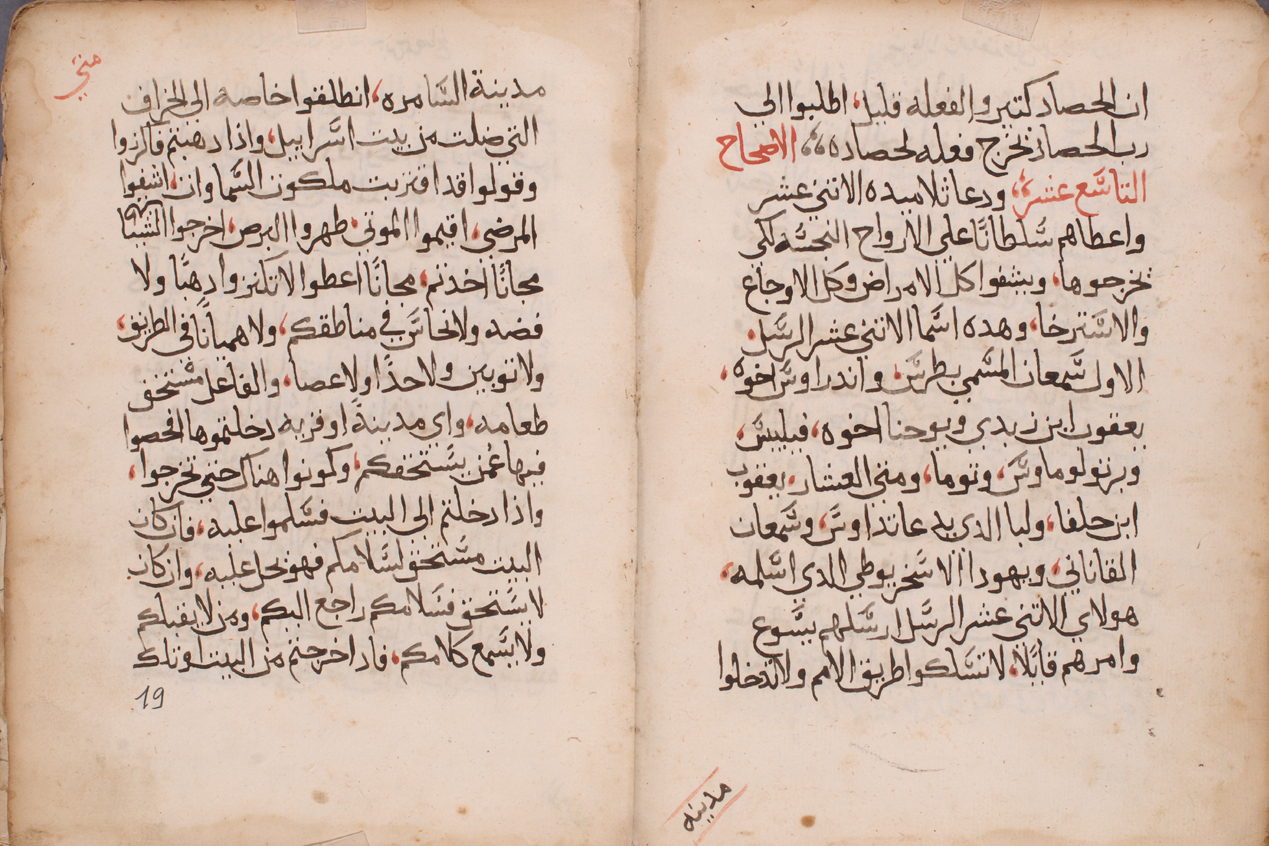 ان الحصاد كتير والفعله قليل، اطلبوا الي
رب الحصاد يخرج فعله لحصاده؛ الاصحاح
التاسَع عشر؛ ودعا تلاميده الاتني عشر
واعطاهم سَلطانًا علي الارواح النجسَه لكي
يخرجوها، ويشفوا كل الامراض وكل الاوجاع
والاسَترخا، وهده اسَما الاتني عشر الرسَل،
الاول سَمعان المسَمي بطرسَ، واندراوسَ اخوه،
يعقوب ابن زبدي ويوحنا اخوه، فيلبسَ،
وبرتولوماوسَ، وتوما، ومتي العشار، يعقوب
ابن حلفا، ولبا الدي يدعا تداوسَ، وسَمعان
القاناني، ويهودا الاسَخريوطي الدي اسَلمه،
هولاي الاتني عشر الرسَل ارسَلهم يسَوع
وامرهم قايلًا، لا تسَلكوا طريق الامم ولا تدخلوا
مدينه
متي
مدينة السَامره، انطلقوا خاصه الي الخراف
التي ضلت من بيت اسَراييل، وادا دهبتم فاكرزوا
وقولوا قد اقتربت ملكوت السَماوات، اشفوا
المرضي، اقيموا الموتي، طهروا البرص، اخرجوا الشياطين
مجانًا اخدتم، مجانًا اعطوا لا تكنزوا دهبًا ولا
فضه ولا نحاسَ في مناطقكم، ولا هميانًا في الطريق،
ولا توبين ولا حدًا ولا عصا، والفاعل مسَتحق
طعامه، واي مدينةً او قريه دخلتموها افحصوا
فيها عمن يسَتحقكم، وكونوا هناك حتي تخرجوا،
وادا دخلتم الي البيت فسَلموا عليه، فان كان
البيت مسَتحق لسَلامكم فهو يحل عليه، وان كان
لا يسَتحق فسَلامكم راجع اليكم، ومن لا يقبلكم
ولا يسَمع كلامكم، فادا خرجتم من البيت او تلك
19